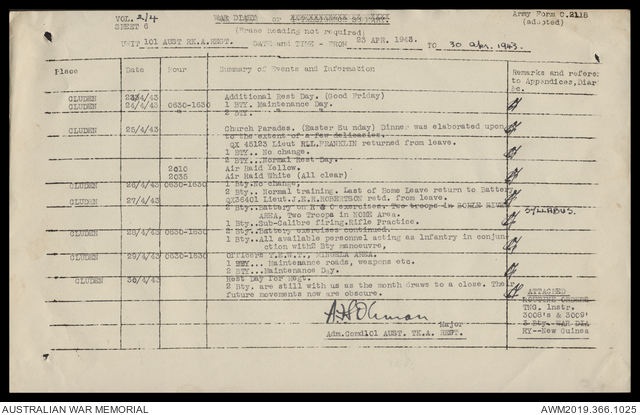 VOL. 2/4 WAR DIARY OF Army Form C.2118
SHEET 6 (Erase heading not required) (adopted)
UNIT 101 AUST TK.A.REGT. DATE and TIME - FROM 23 APR. 1943. TO 30 Apr. 1943.
Place Date Hour Summary of Events and Information Remarks and referen
to Appendices, Diar
&c.
CLUDEN 23/4/43 Additional Rest Day. (Good Friday)
CLUDEN 24/4/43 0630-1630 1 BTY. Maintenance Day.
2 BTY. "
CLUDEN 25/4/43 Church Parades. (Easter Su nday) Dinner was elaborated upon
to the extent of a few delicasies.
QX 45123 Lieut RLL.FRANKLIN returned from leave.
1 BTY.. No change.
2 BTY...Normal Rest Day.
2010 Air Raid Yellow.
2035 Air Raid White (All clear)
CLUDEN 26/4/43 0630-1630 1 Bty.No change,
2 Bty.. Normal training. Last of Home Leave return to Battery
CLUDEN 27/4/43 QX36401 Lieut.J.E.R.ROBERTSON retd. from leave.
2 Bty..Battery on R & O exercises. Two troops in BOHLE RIVER
AREA, Two Troops in HOME Area. SYLLABUS.
1 Bty..Sub-Calibre firing,Rifle Practice.
CLUDEN 28/4/43 0630-1630 2 Bty..Battery exercises continued.
1 Bty..All available personnel acting as Infantry in conjun
ction with2 Bty manoeuvre,
CLUDEN 29/4/43 0630-1630 Officers T.E.W.T., AREA.
1 BTY... Maintenance roads, weapons etc.
2 BTY...Maintenance Day.
CLUDEN 30/4/43 Rest Day for Regt.
2 Bty. are still with us as the month draws to a close. Their
future movements now are obscure.
ATTACHED
ROUTINE ORDERS
TNG. Instr.
3008's & 3009'
3 Bty. WAR DIA
RY--New Guinea
Major
Adm.Comd101 AUST. TK.A. REGT.
AUSTRALIAN WAR MEMORIAL AWM2019.366.1025